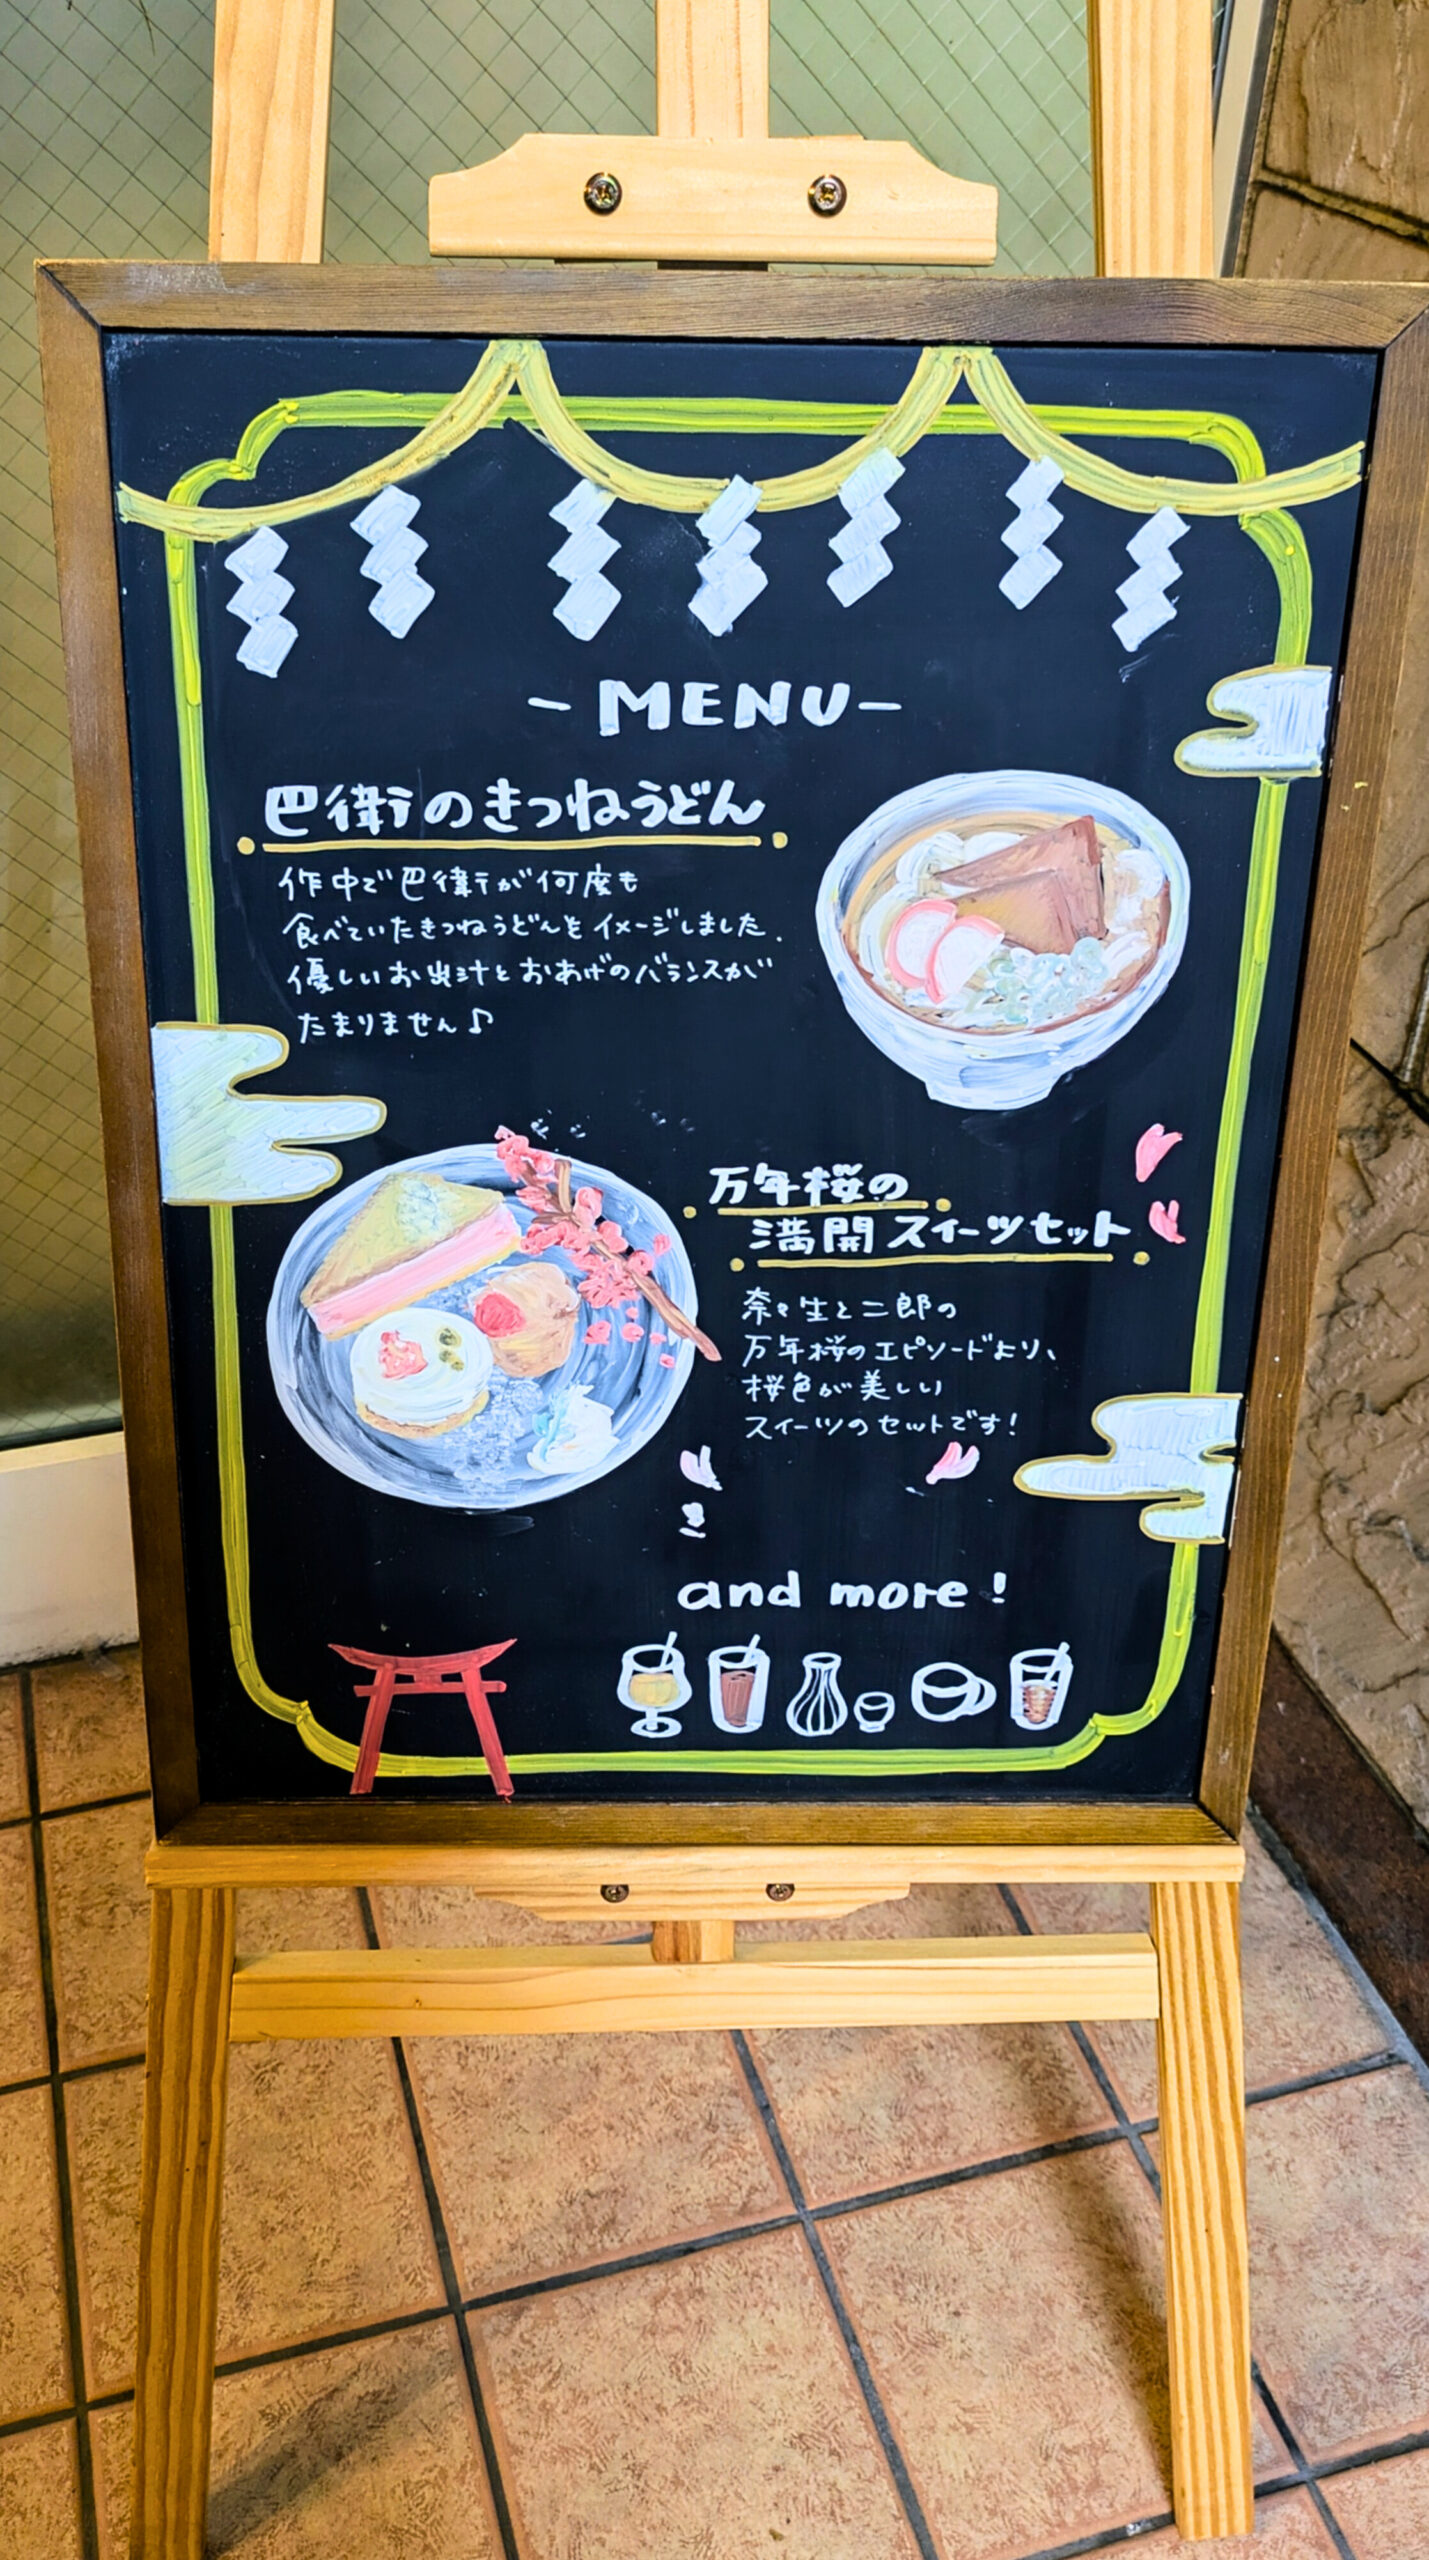 -MENU-
巴衛のきつねうどん
作中で巴衛が何度も
食べていたきつねうどんをイメージしました.
優しいお出汁とおあげのバランスが
たまりません♪
万年桜の
満開スイーツセット
奈々生と二郎の
万年桜のエピソードより、
桜色が美しい
スイーツのセットです!
and more!